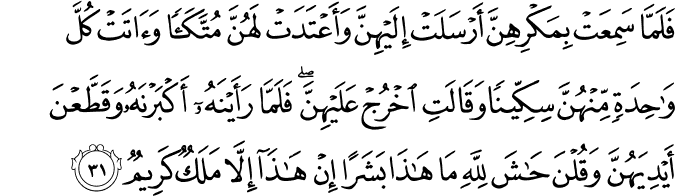 فَلَمَّا سَمِعَتْ بِمَكْرِهِنَّ أَرْسَلَتْ إِلَيْهِنَّ وَأَعْتَدَتْ لَهُنَّ مُتَّكَـًٔا وَءَاتَتْ كُلَّ
وَٰحِدَةٍ مِّنْهُنَّ سِكِّينًا وَقَالَتِ ٱخْرُجْ عَلَيْهِنَّ ۖ فَلَمَّا رَأَيْنَهُۥٓ أَكْبَرْنَهُۥ وَقَطَّعْنَ
أَيْدِيَهُنَّ وَقُلْنَ حَٰشَ لِلَّهِ مَا هَٰذَا بَشَرًا إِنْ هَٰذَآ إِلَّا مَلَكٌ كَرِيمٌ ٣١